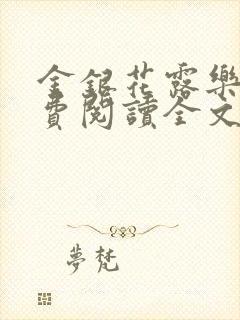 金銀花露樂
費閱讀全文
夢梵